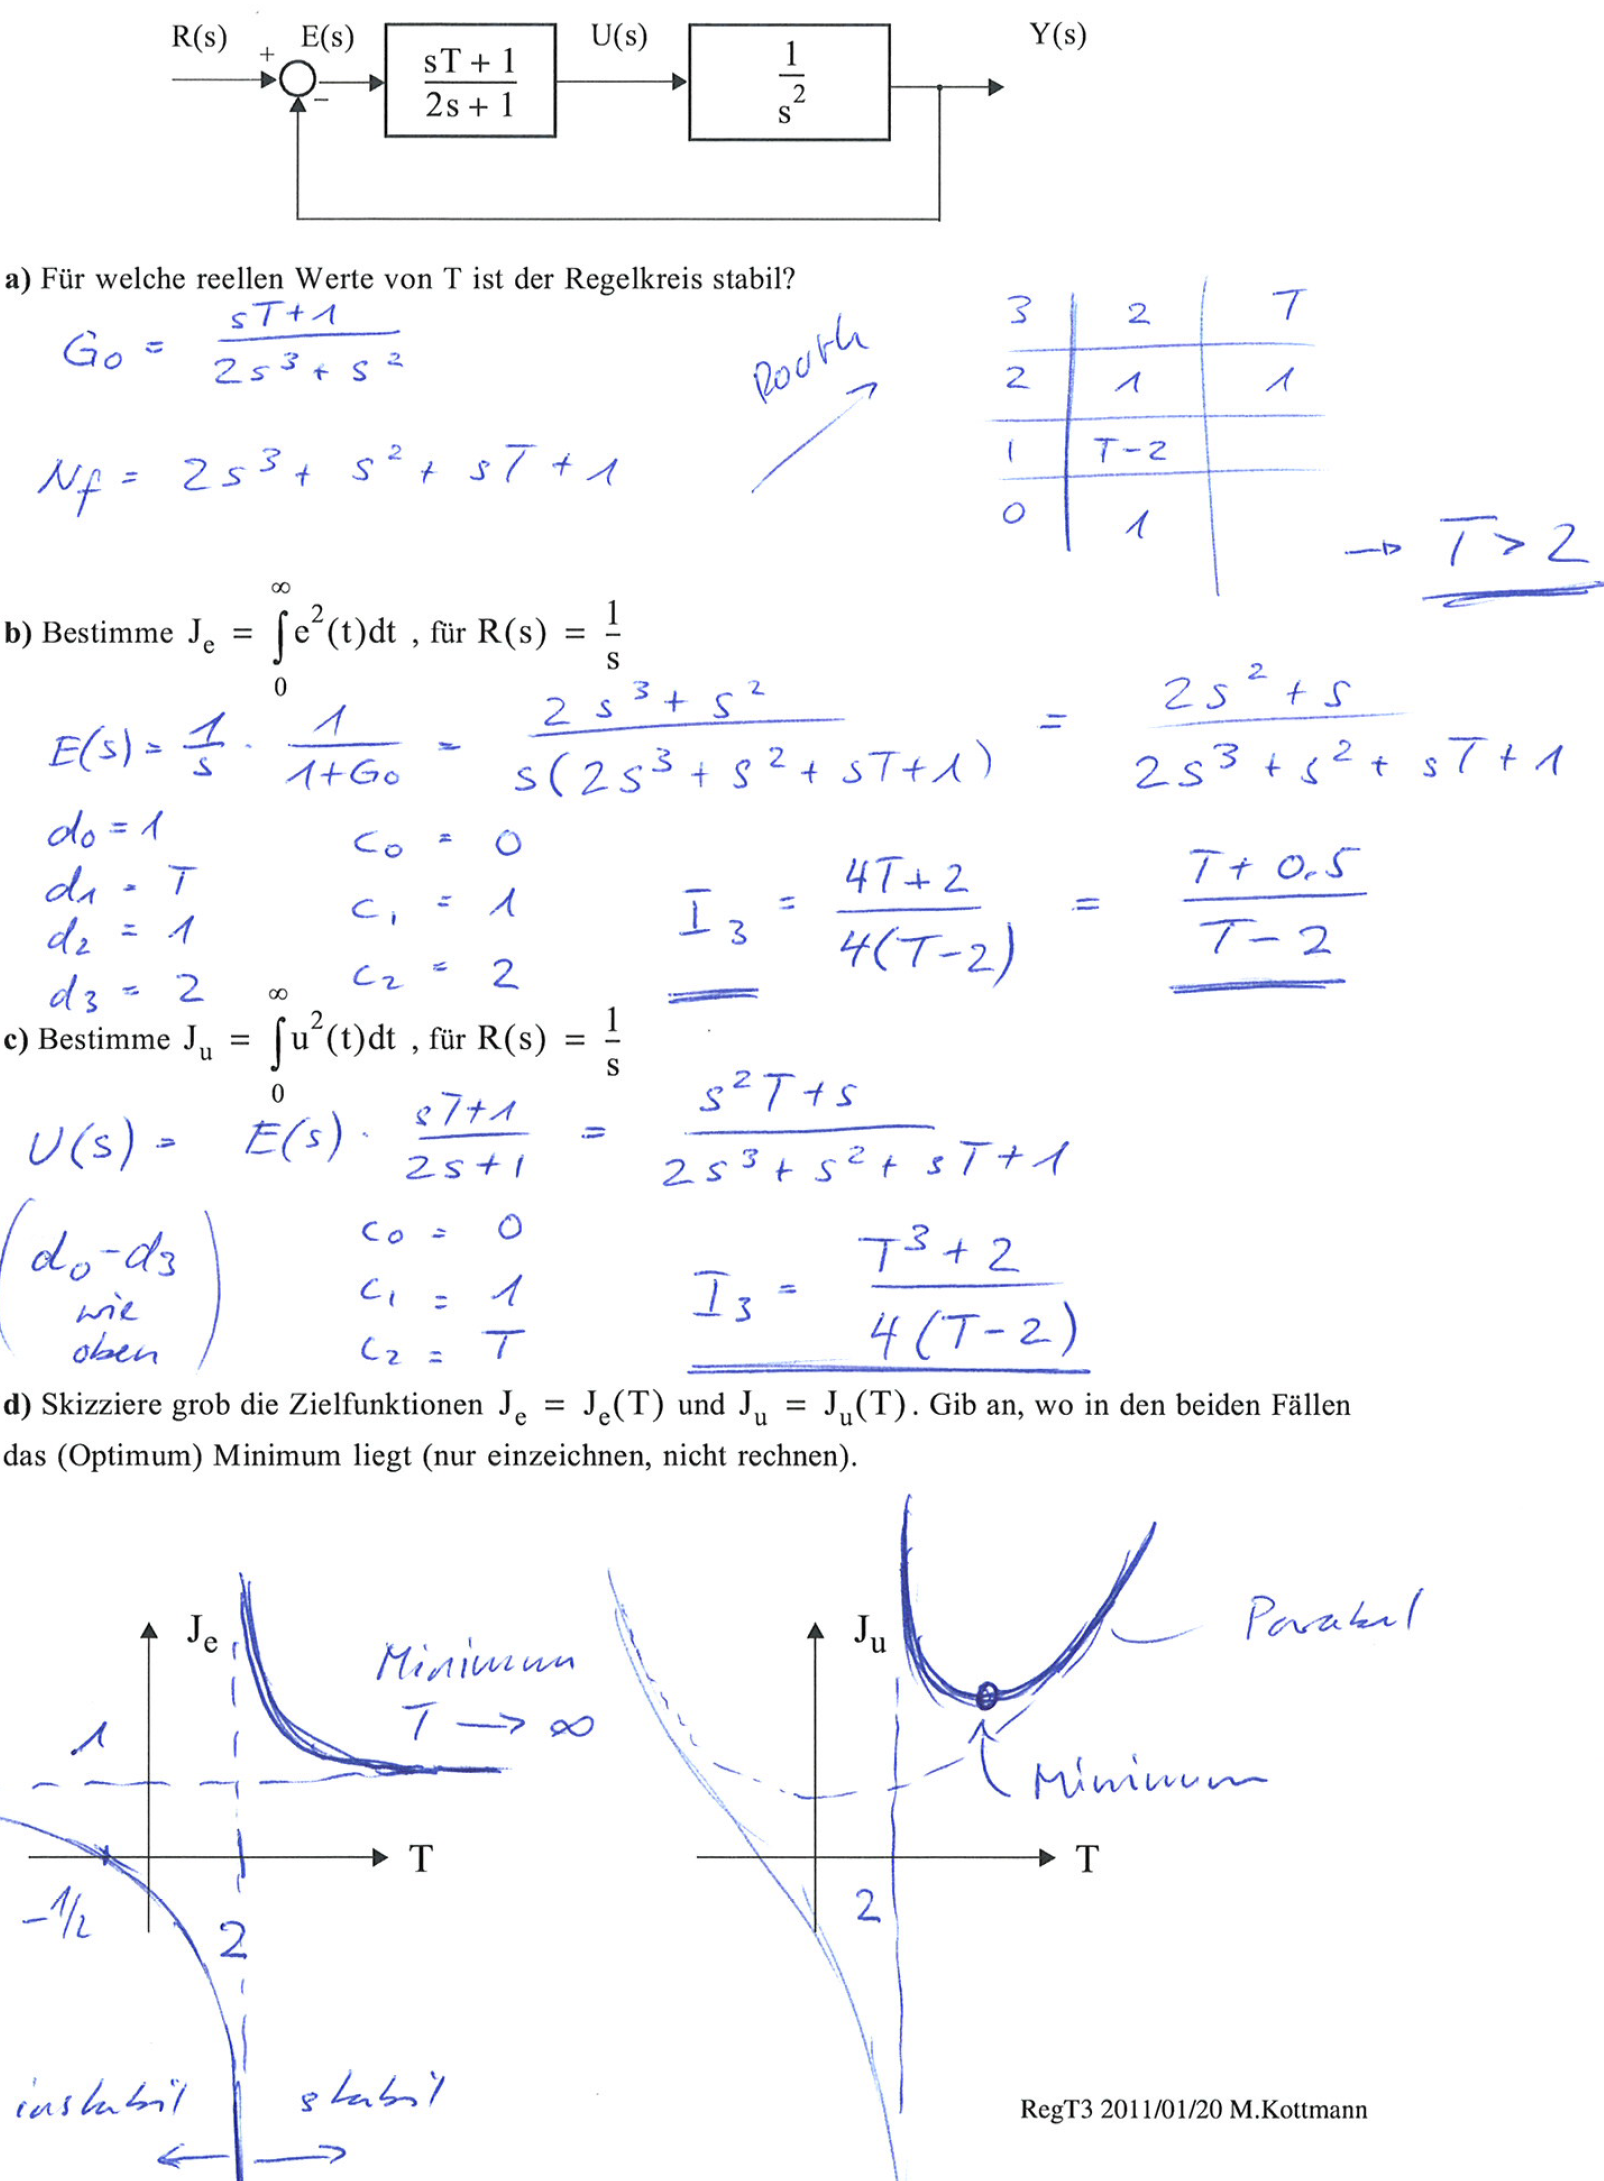 R(s) + E(s) sT + 1 / 2s + 1 U(s) 1 / s² Y(s)
−
a) Für welche reellen Werte von T ist der Regelkreis stabil?
G₀ = (sT+1) / (2s³ + s²)
Nf = 2s³ + s² + sT + 1
Routh
3 | 2 | T
2 | 1 | 1
1 | T-2
0 | 1
→ T > 2
b) Bestimme Jₑ = ∫₀^∞ e²(t)dt , für R(s) = 1/s
E(s) = 1/s · 1/(1+G₀) = (2s³ + s²) / (s(2s³ + s² + sT + 1)) = (2s² + s) / (2s³ + s² + sT + 1)
d₀ = 1 c₀ = 0
d₁ = T c₁ = 1
d₂ = 1 c₂ = 2
d₃ = 2
I₃ = (4T+2) / (4(T-2)) = (T + 0.5) / (T-2)
c) Bestimme Jᵤ = ∫₀^∞ u²(t)dt , für R(s) = 1/s
U(s) = E(s) · (sT+1) / (2s+1) = (s²T + s) / (2s³ + s² + sT + 1)
(d₀-d₃
wie
oben)
c₀ = 0
c₁ = 1
c₂ = T
I₃ = (T³ + 2) / (4(T-2))
d) Skizziere grob die Zielfunktionen Jₑ = Jₑ(T) und Jᵤ = Jᵤ(T). Gib an, wo in den beiden Fällen
das (Optimum) Minimum liegt (nur einzeichnen, nicht rechnen).
Jₑ
Minimum
T → ∞
1
T
-1/2
2
instabil stabil
Jᵤ
Parabel
Minimum
T
2
RegT3 2011/01/20 M.Kottmann